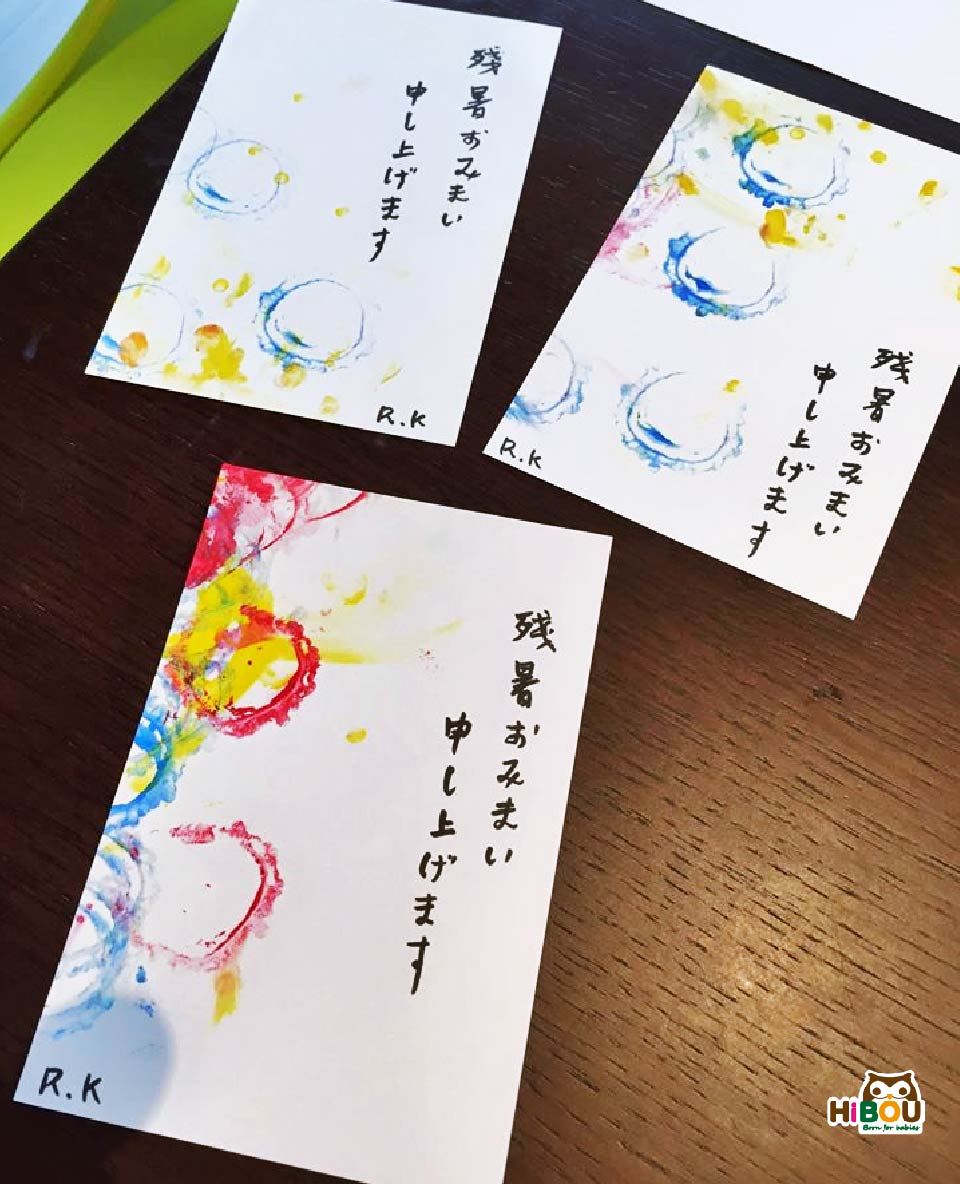 残暑おみまい
申し上げます
R.K
残暑おみまい
申し上げます
R.K
残暑おみまい
申し上げます
R.K
HiBOU
Born for babies